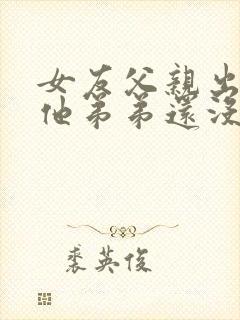 女友父親出
他弟弟還沒
裘英俊